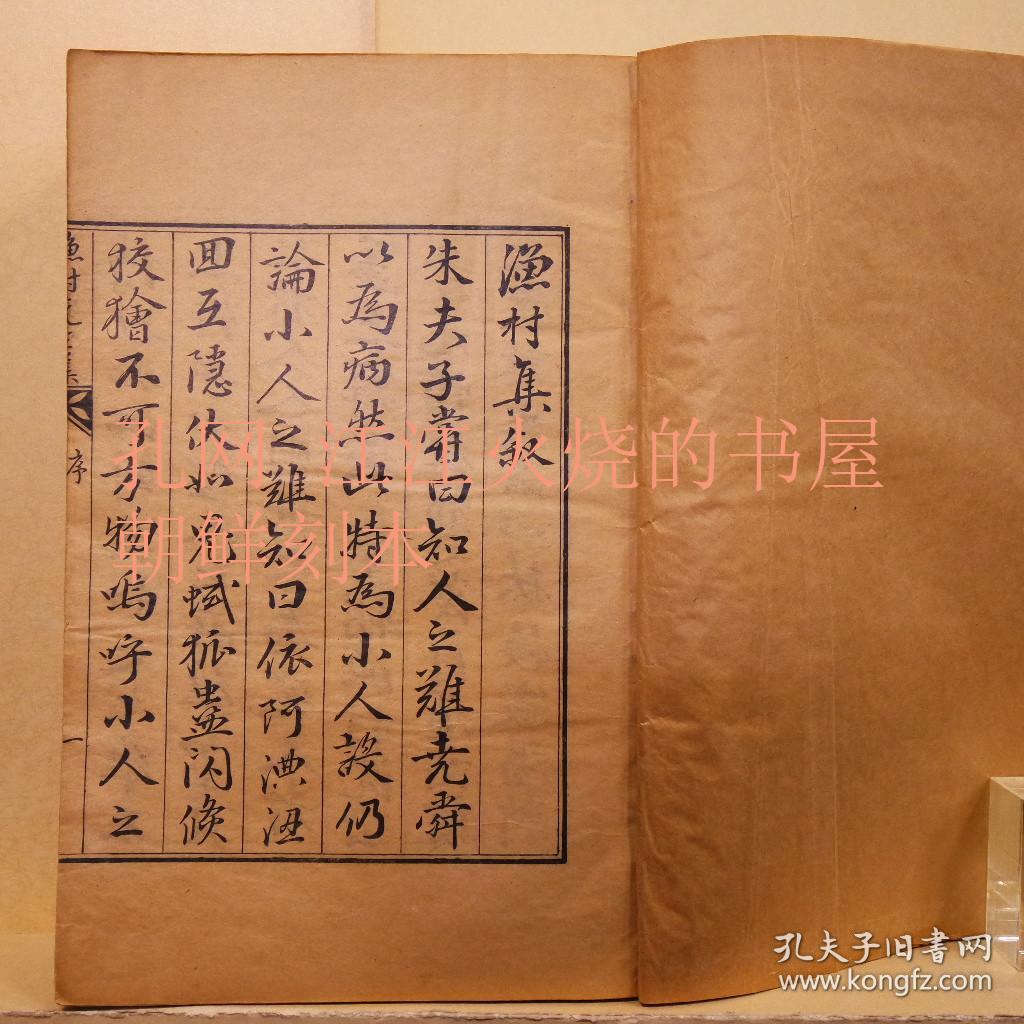 漁村集叙
朱夫子嘗曰知人之難堯舜
以為病然此特為小人設仍
論小人之難知曰依阿淟涊
回互隱伏如鬼蜮狐蠱閃倏
狡獪不可方物嗚呼小人之
漁村先生集
序
一
孔网 江江火烧的书屋
朝鲜刻本
孔夫子旧书网
www.kongfz.com